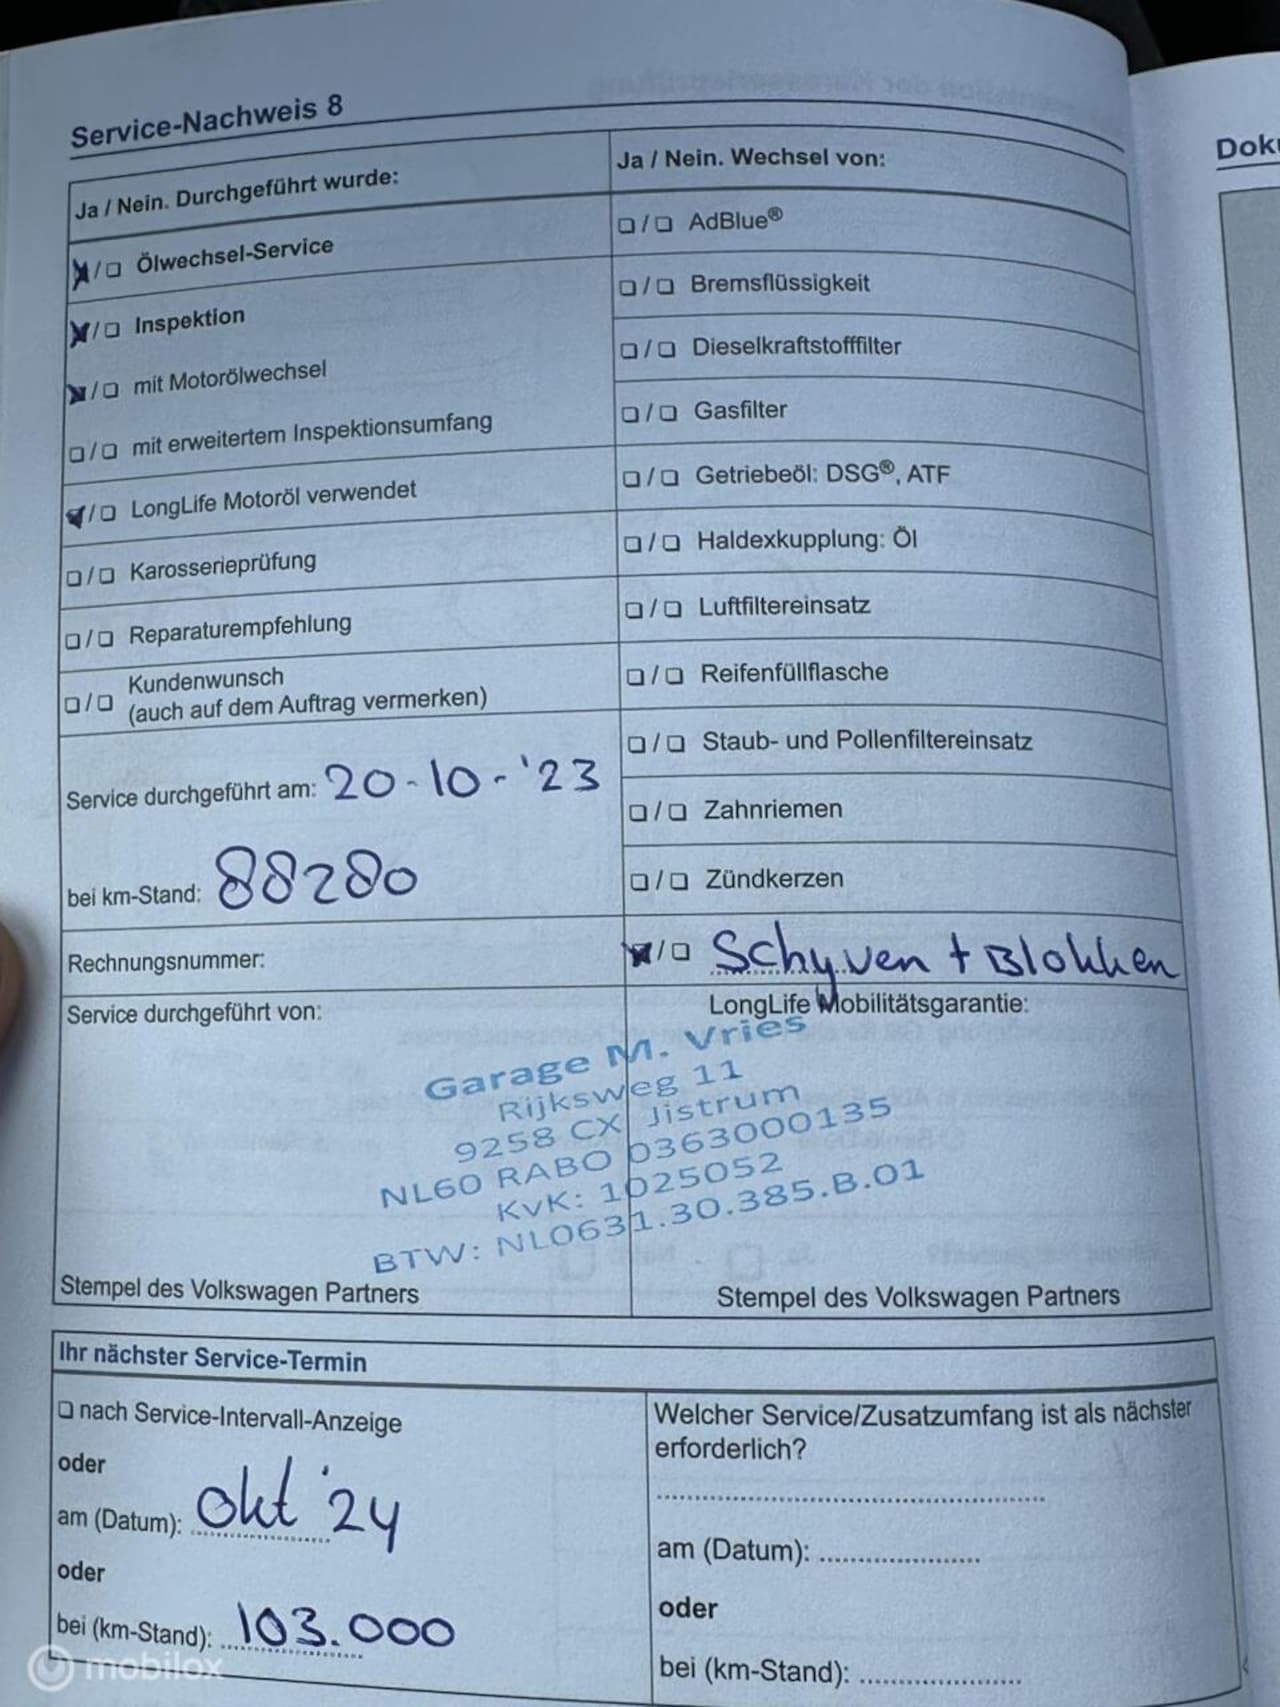 Service-Nachweis 8
Ja / Nein. Durchgeführt wurde:
Ölwechsel-Service
Inspektion
mit Motorölwechsel
mit erweitertem Inspektionsumfang
LongLife Motoröl verwendet
Karosserieprüfung
Reparaturempfehlung
Kundenwunsch
(auch auf dem Auftrag vermerken)
Service durchgeführt am: 20-10-'23
bei km-Stand: 88280
Rechnungsnummer:
Service durchgeführt von:
Ja / Nein. Wechsel von:
AdBlue®
Bremsflüssigkeit
Dieselkraftstofffilter
Gasfilter
Getriebeöl: DSG®, ATF
Haldexkupplung: Öl
Luftfiltereinsatz
Reifenfüllflasche
Staub- und Pollenfiltereinsatz
Zahnriemen
Zündkerzen
Schyven + Blokken
LongLife Mobilitätsgarantie:
Garage M. Vries
Rijksweg 11
9258 CX Jistrum
NL60 RABO 0363000135
KvK: 1025052
BTW: NL0631.30.385.B.01
Stempel des Volkswagen Partners
Stempel des Volkswagen Partners
Ihr nächster Service-Termin
nach Service-Intervall-Anzeige
oder
am (Datum): okt '24
oder
bei (km-Stand): 103.000
Welcher Service/Zusatzumfang ist als nächster
erforderlich?
am (Datum):
oder
bei (km-Stand):
mobilox